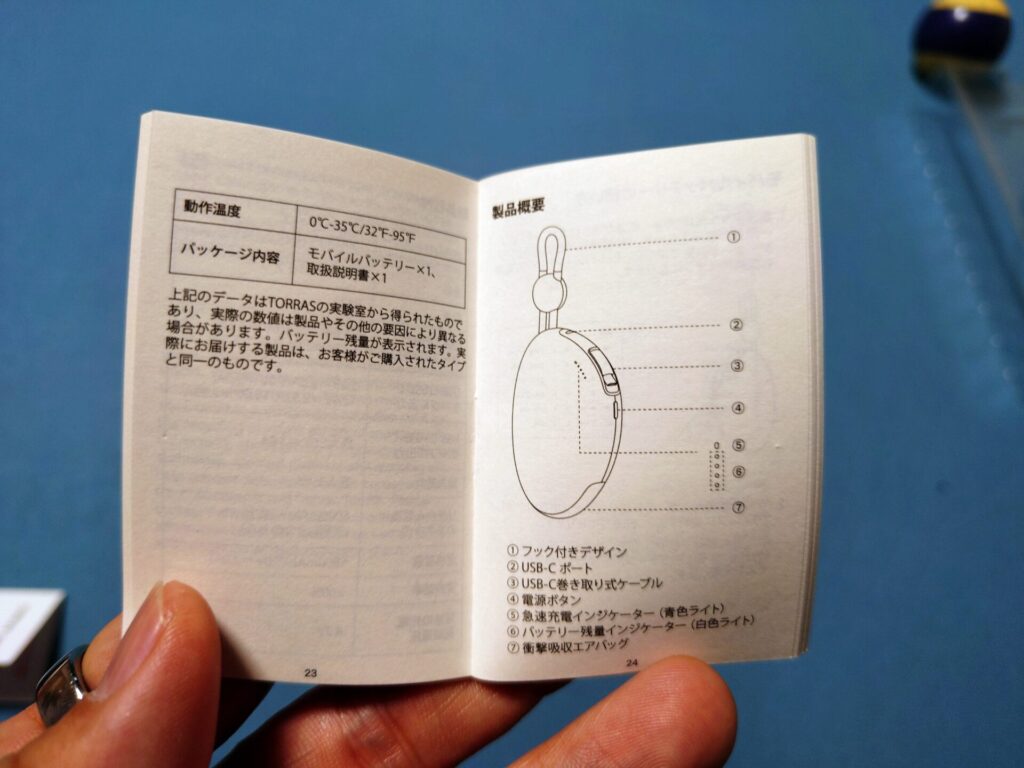 動作温度
0℃-35℃/32℉-95℉
パッケージ内容
モバイルバッテリー×1、
取扱説明書×1
上記のデータはTORRASの実験室から得られたもので
あり、実際の数値は製品やその他の要因により異なる
場合があります。バッテリー残量が表示されます。実
際にお届けする製品は、お客様がご購入されたタイプ
と同一のものです。
23
製品概要
①
②
③
④
⑤
⑥
⑦
①フック付きデザイン
②USB-C ポート
③USB-C巻き取り式ケーブル
④電源ボタン
⑤急速充電インジケーター（青色ライト）
⑥バッテリー残量インジケーター（白色ライト）
⑦衝撃吸収エアバッグ
24